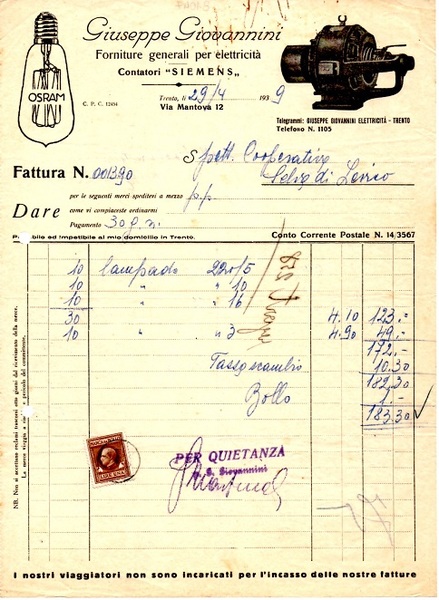 Giuseppe Giovannini
Forniture generali per elettricità
Contatori "SIEMENS"
OSRAM
C. P. C. 12484
Trento, li 29/4 1939
Via Mantova 12
Telegrammi: GIUSEPPE GIOVANNINI ELETTRICITÀ - TRENTO
Telefono N. 1105
Spett. Cooperativa
Selva di Levico
Fattura N. 001390
per le seguenti merci speditevi a mezzo p.p.
Dare come vi compiaceste ordinarmi
Pagamento 30 g.
bile ed impetibile al mio domicilio in Trento.
Conto Corrente Postale N. 14/3567
10 Lampade 220/5
10 " " 10
10 " " 16
30 4.10 123.=
10 " " 3 4.90 49.-
172.-
Tassa scambio 10.30
182.30
Bollo 1.-
183.30
NB. Non si accettano reclami trascorsi otto giorni dal ricevimento della merce.
La merce viaggia a rischio e pericolo del committente.
PER QUIETANZA
G. Giovannini
I nostri viaggiatori non sono incaricati per l'incasso delle nostre fatture